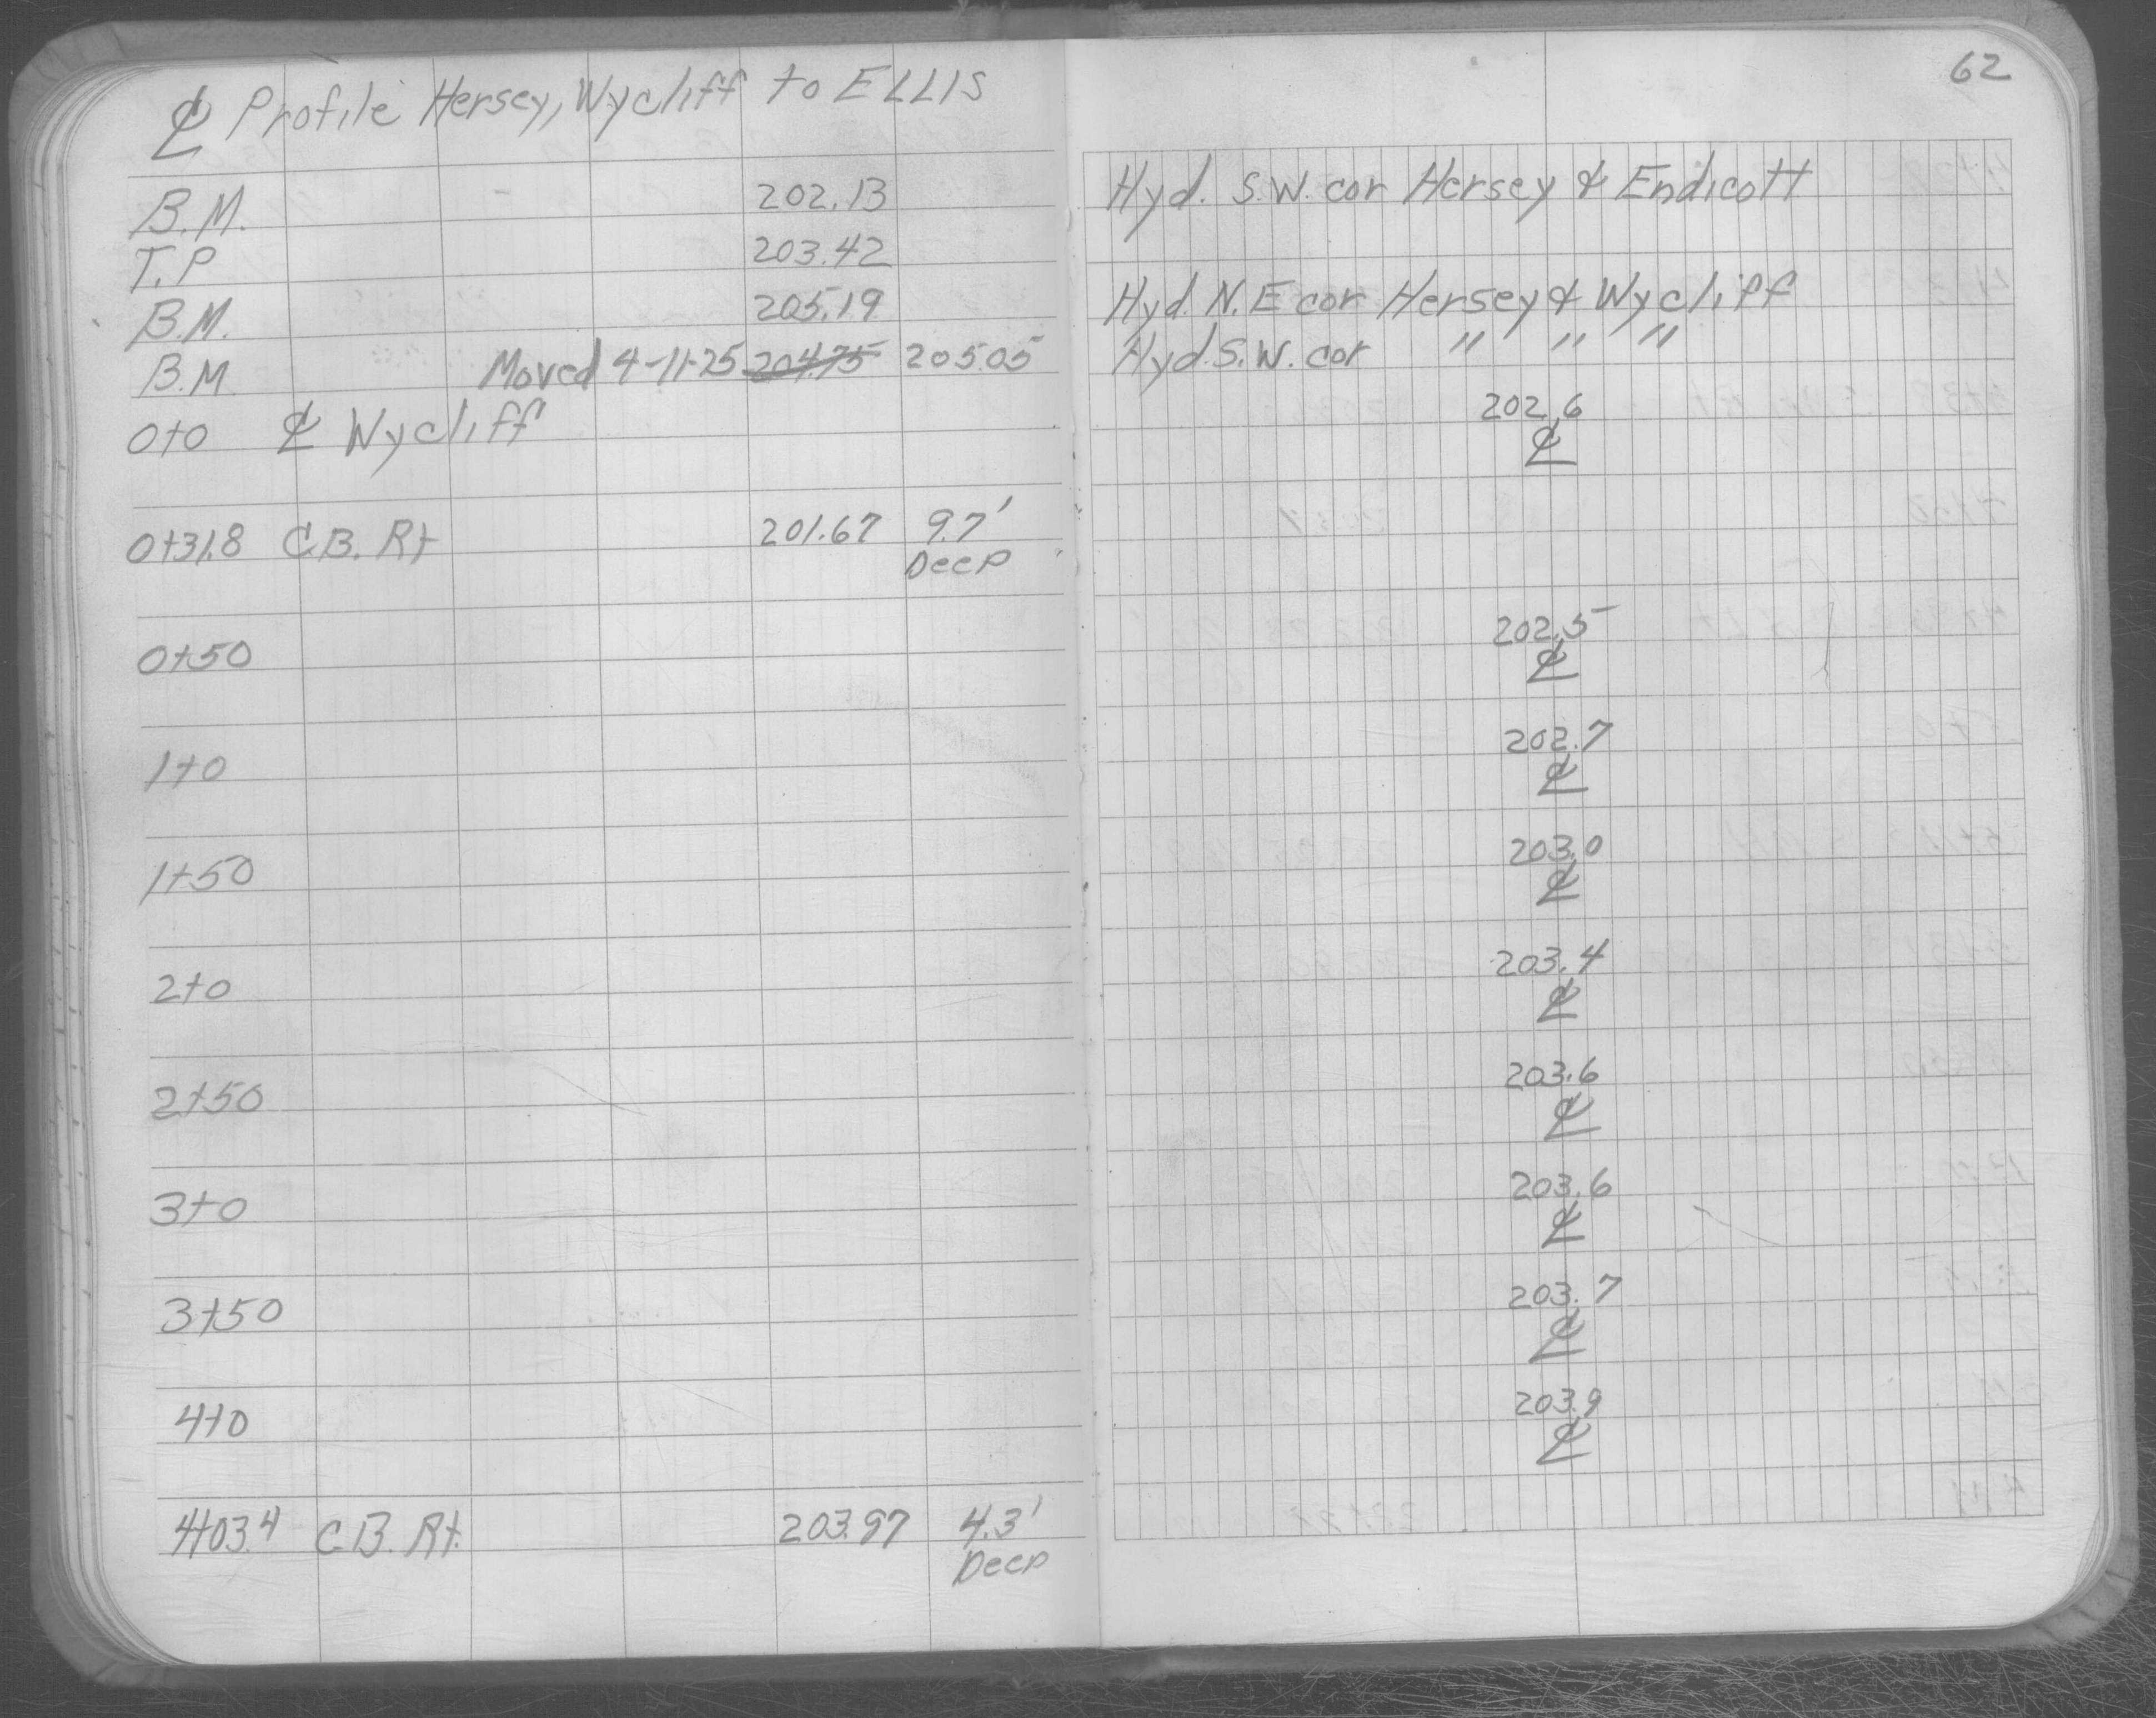 ℄ Profile Hersey, Wycliff to ELLIS
B.M. 202.13
T.P 203.42
B.M. 205.19
B.M Moved 4-11-25 204.75 205.05
0+0 ℄ Wycliff
0+31.8 C.B. Rt 201.67 9.7'
Deep
0+50
1+0
1+50
2+0
2+50
3+0
3+50
4+0
4+03.4 C.B. Rt. 203.97 4.3'
Deep
62
Hyd. S.W. cor Hersey & Endicott
Hyd. N.E cor Hersey & Wycliff
Hyd. S.W. cor " " "
202.6
℄
202.5
℄
202.7
℄
203.0
℄
203.4
℄
203.6
℄
203.6
℄
203.7
℄
203.9
℄